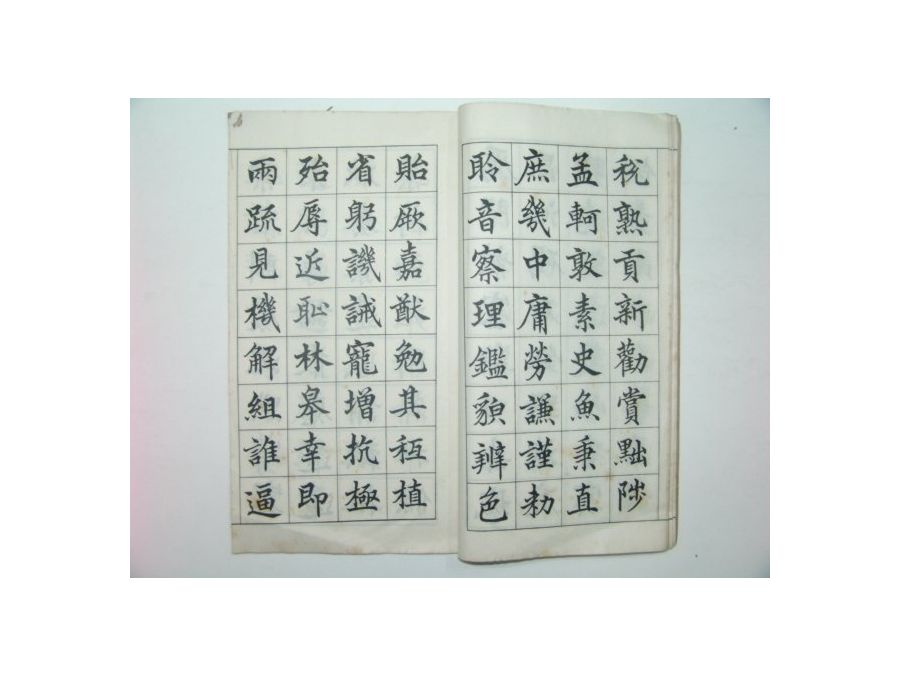 稅熟貢新勸賞黜陟
孟軻敦素史魚秉直
庶幾中庸勞謙謹勅
聆音察理鑑貌辨色
貽厥嘉猷勉其秪植
省躬譏誡寵增抗極
殆辱近恥林皋幸即
兩疏見機解組誰逼